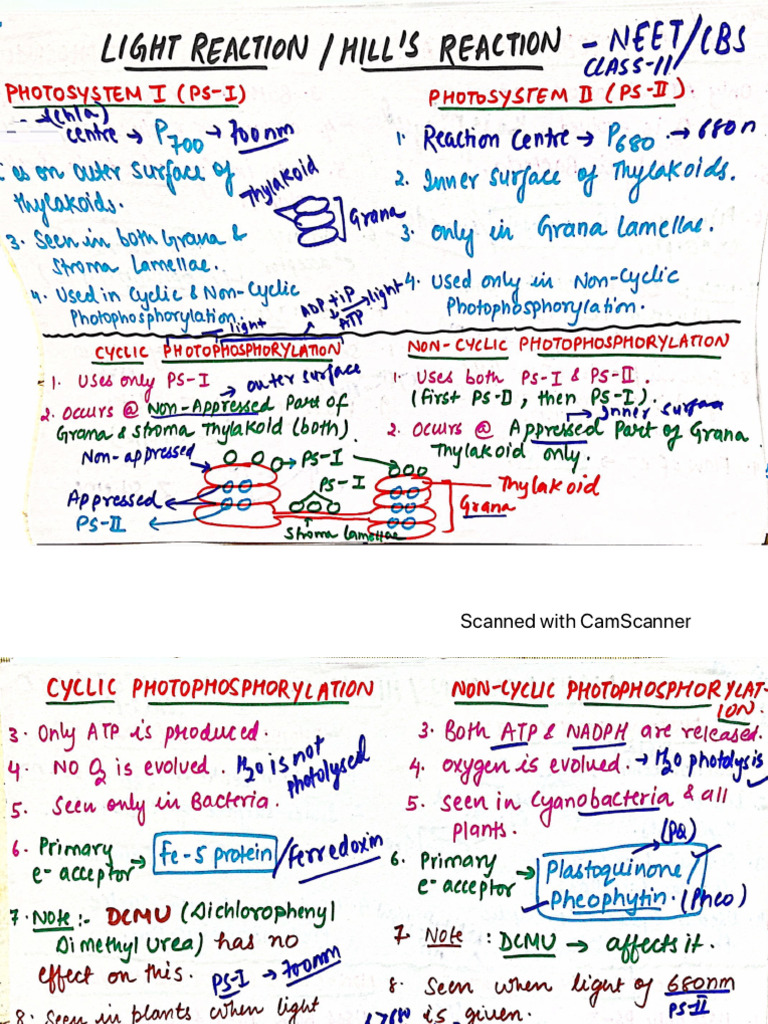 LIGHT REACTION / HILL'S REACTION - NEET/CBS
CLASS-11
PHOTOSYSTEM I (PS-I)
(Chla)
centre → P700 → 700nm
es on outer surface of
thylakoids.
Thylakoid
Grana
3. Seen in both Grana &
Stroma Lamellae.
4. Used in Cyclic & Non-Cyclic
Photophosphorylation.
PHOTOSYSTEM II (PS-II)
1. Reaction Centre → P680 → 680n
2. Inner surface of Thylakoids.
3. only in Grana Lamellae.
4. Used only in Non-Cyclic
Photophosphorylation.
light
ADP + iP
→ light
ATP
CYCLIC PHOTOPHOSPHORYLATION
1. Uses only PS-I
→ outer surface
2. Occurs @ Non-Appressed Part of
Grana & Stroma Thylakoid (both).
NON-CYCLIC PHOTOPHOSPHORYLATION
1. Uses both PS-I & PS-II.
(first PS-II, then PS-I).
→ Inner surface
2. Occurs @ Appressed Part of Grana
Thylakoid only.
Non-appressed
→ PS-I
PS-I
Appressed
PS-II
Stroma lamellae
Thylakoid
Grana
Scanned with CamScanner
CYCLIC PHOTOPHOSPHORYLATION
3. Only ATP is produced.
4. NO O2 is evolved. H2O is not
photolysed
5. Seen only in Bacteria.
6. Primary
e- acceptor → Fe-S protein / ferredoxin
7. Note:- DCMU (Dichlorophenyl
Dimethyl Urea) has no
effect on this. PS-I → 700nm
8. Seen in plants when light
NON-CYCLIC PHOTOPHOSPHORYLAT-
ION.
3. Both ATP & NADPH are released.
4. oxygen is evolved. → H2O photolysis
5. Seen in Cyanobacteria & all
plants.
(PQ)
6. Primary
e- acceptor → Plastoquinone/
Pheophytin. (Pheo)
7. Note : DCMU → affects it.
8. Seen when light of 680nm
PS-II
is given.